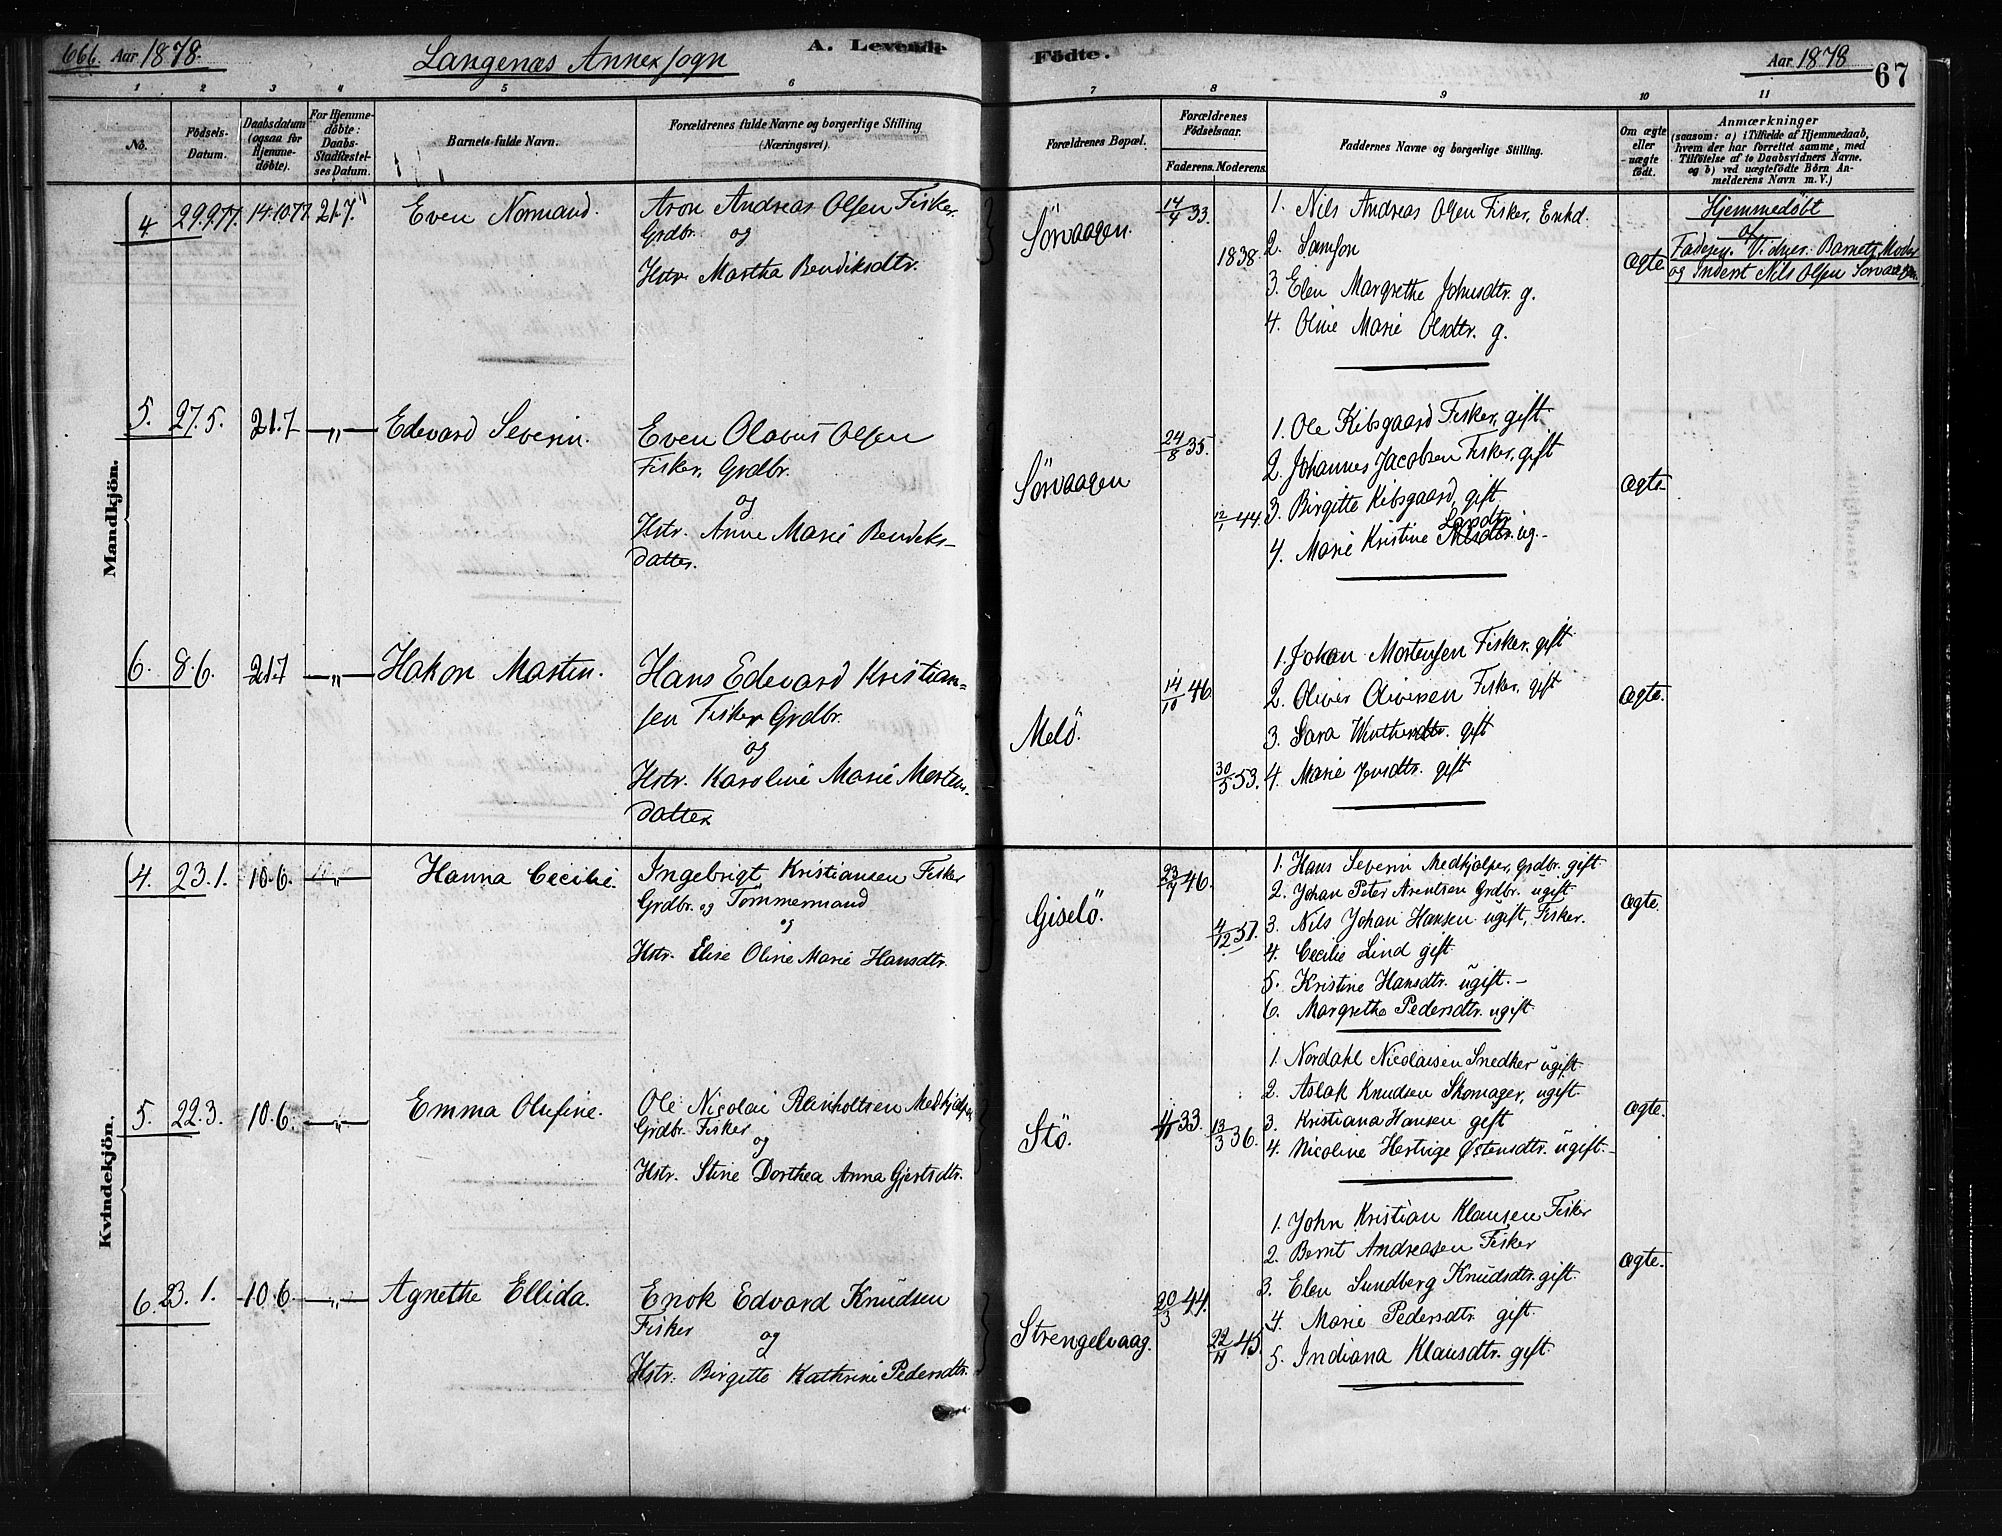 Aar 1878.
Langenæs Annexsogn
A. Levende
Födte.
Aar 1878
67
1 2 3 4 5 6 7 8 9 10 11
No.
Födsels-
Datum.
Daabsdatum
(ogsaa for
Hjemme-
döbte).
For Hjemme-
döbte:
Daabs-
Stadfæstel-
ses Datum.
Barnets fulde Navn.
Forældrenes fulde Navne og borgerlige Stilling
(Næringsvei).
Forældrenes Bopæl.
Forældrenes
Födselsaar.
Faderens. Moderens.
Faddernes Navne og borgerlige Stilling.
Om ægte
eller
uægte
födt.
Anmærkninger
(saasom: a) i Tilfælde af Hjemmedaab,
hvem der har forrettet samme, med
Tilföielse af to Daabsvidners Navne.
og b) ved uægtefödte Börn An-
melderens Navn m. V.)
Mandkjön.
4 29.9.77. 14.10.77 21.7. Even Normand.
Aron Andreas Olsen Fisker
Grdbr. og
Hstr. Martha Bendiksdtr.
Sörvaagen.
14/9 33.
1838.
1. Nils Andreas Olsen Fisker, Enkd.
2. Samson
3. Elen Margrethe Johnsdtr. g.
4. Oline Marie Olsdtr. g.
Ægte.
Hjemmedöbt
af
Faderen. Vidner: Barnets Moder
og Inderst Nils Olsen Sörvaagen
5. 27.5. 21.7 —"— Edevard Severin.
Even Olavus Olsen
Fisker, Grdbr.
og
Hstr. Anne Marie Bendiks-
datter.
Sörvaagen
24/8 35.
12/1 44.
1. Ole Kibsgaard Fisker, gift
2. Johannes Jacobsen Fisker, gift
3. Birgitte Kibsgaard, gift.
4. Marie Kristine ug.-
Ægte.
6. 8.6. 21.7 —"— Hakon Martin.
Hans Edevard Kristian-
sen Fisker Grdbr.
og
Hstr. Karoline Marie Mortens-
datter
Melö.
14/10 46
30/5 53.
1. Johan Mortensen Fisker, gift
2. Oliver Oliversen Fisker, gift
3. Sara gift
4. Marie Jensdtr. gift
Ægte.
Kvindekjön.
4. 23.1. 10.6. —"— Hanna Cecilie.
Ingebrigt Kristiansen Fisker
Grdbr. og Tömmermand
og
Hstr. Elise Oline Marie Hansdtr.
Giselö.
23/9 46.
4/12 51.
1. Hans Severin Medhjælper, Grdbr. gift
2. Johan Peter Arentsen Grdbr. ugift
3. Nils Johan Hansen ugift, Fisker.
4. Cecilie Lind gift
5. Kristine Hansdtr. ugift.-
6. Margrethe Pedersdtr. ugift
Ægte.
5. 22.3. 10.6. —"— Emma Olufine.
Ole Nicolai Reinholtsen Medhjælper
Grdbr. Fisker
og
Hstr. Stine Dorthea Anna Gjertsdtr.
Stö.
33.
13/3 36.
1. Nordahl Nicolaisen Snedker ugift
2. Aslak Knudsen Skomager, ugift.
3. Kristiana Hansen gift
4. Nicoline Hertvige Østensdtr. ugift.-
Ægte.
6. 23.1. 10.6. —"— Agnethe Ellida.
Enok Edvard Knudsen
Fisker og
Hstr. Birgitte Kathrine Pedersdtr.
Strengelvaag.
20/3 44.
22/11 45.
1. John Kristian Klausen Fisker
2. Bernt Andreasen Fisker
3. Elen Sundberg Knudsdtr. gift.
4. Marie Pedersdtr gift
5. Indiana Klausdtr. gift.
Ægte.